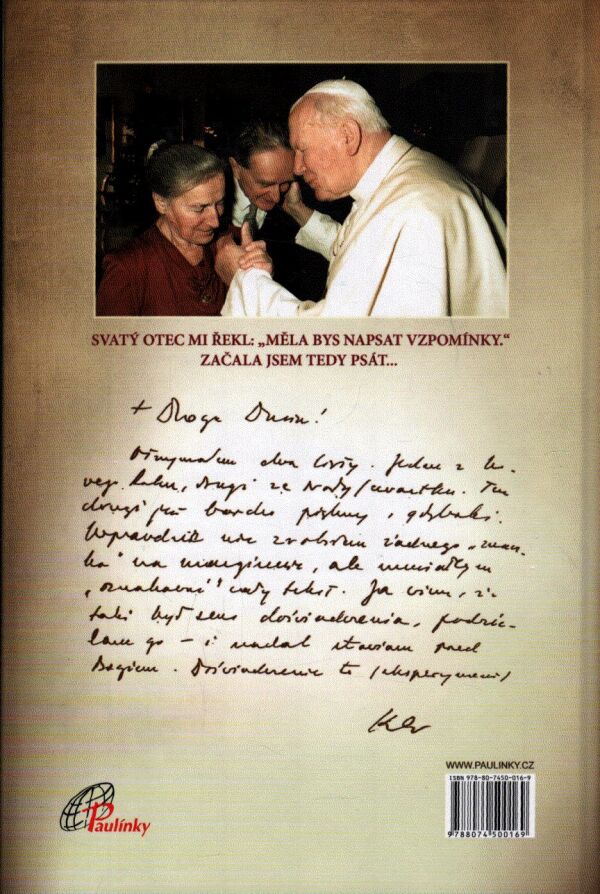 SVATÝ OTEC MI ŘEKL: „MĚLA BYS NAPSAT VZPOMÍNKY.“
ZAČALA JSEM TEDY PSÁT...
+ Droga Dusiu!
Otrzymałem dwa listy. Jeden z
drugi ze środy/czwartku. Ten
drugi jest bardzo piękny i głęboki.
Wprawdzie nie zrobiłem żadnego „znacz-
ka” na marginesie, ale musiałbym
„oznakować” cały tekst. Ja wiem, że
taki był sens doświadczenia, podzie-
lam go – i nadal stawiam przed
Bogiem. Doświadczenie to (eksperyment)
WWW.PAULINKY.CZ
ISBN 978-80-7450-016-9
9788074500169
Paulínky